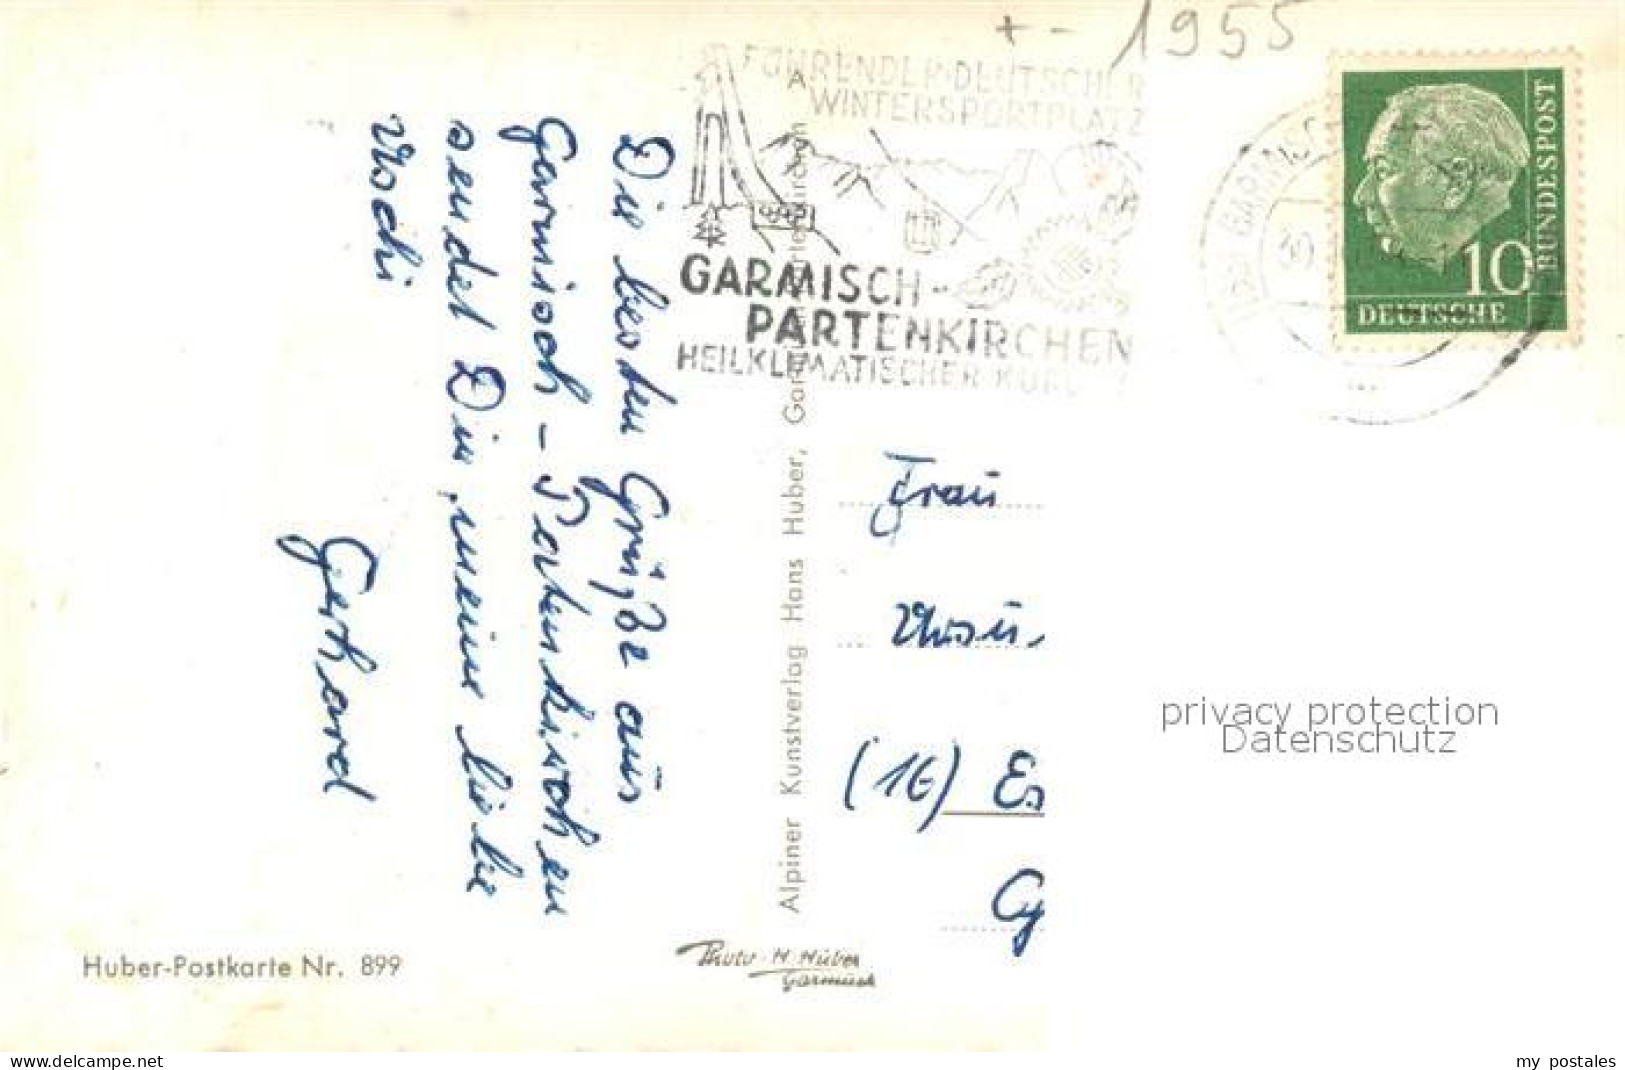 +- 1955
FÜHRENDER DEUTSCHER
WINTERSPORTPLATZ
GARMISCH-
PARTENKIRCHEN
HEILKLIMATISCHER KUR
GARMISCH
DEUTSCHE
BUNDESPOST
10
Die besten Grüße aus
Garmisch - Partenkirchen
sendet Dir, meine liebe
Gerhard
Alpiner Kunstverlag Hans Huber, Garmisch-Partenkirchen
Frau
(16) Es
Huber-Postkarte Nr. 899
Photo H. Huber
Garmisch
privacy protection
Datenschutz
delcampe.net
my_postales